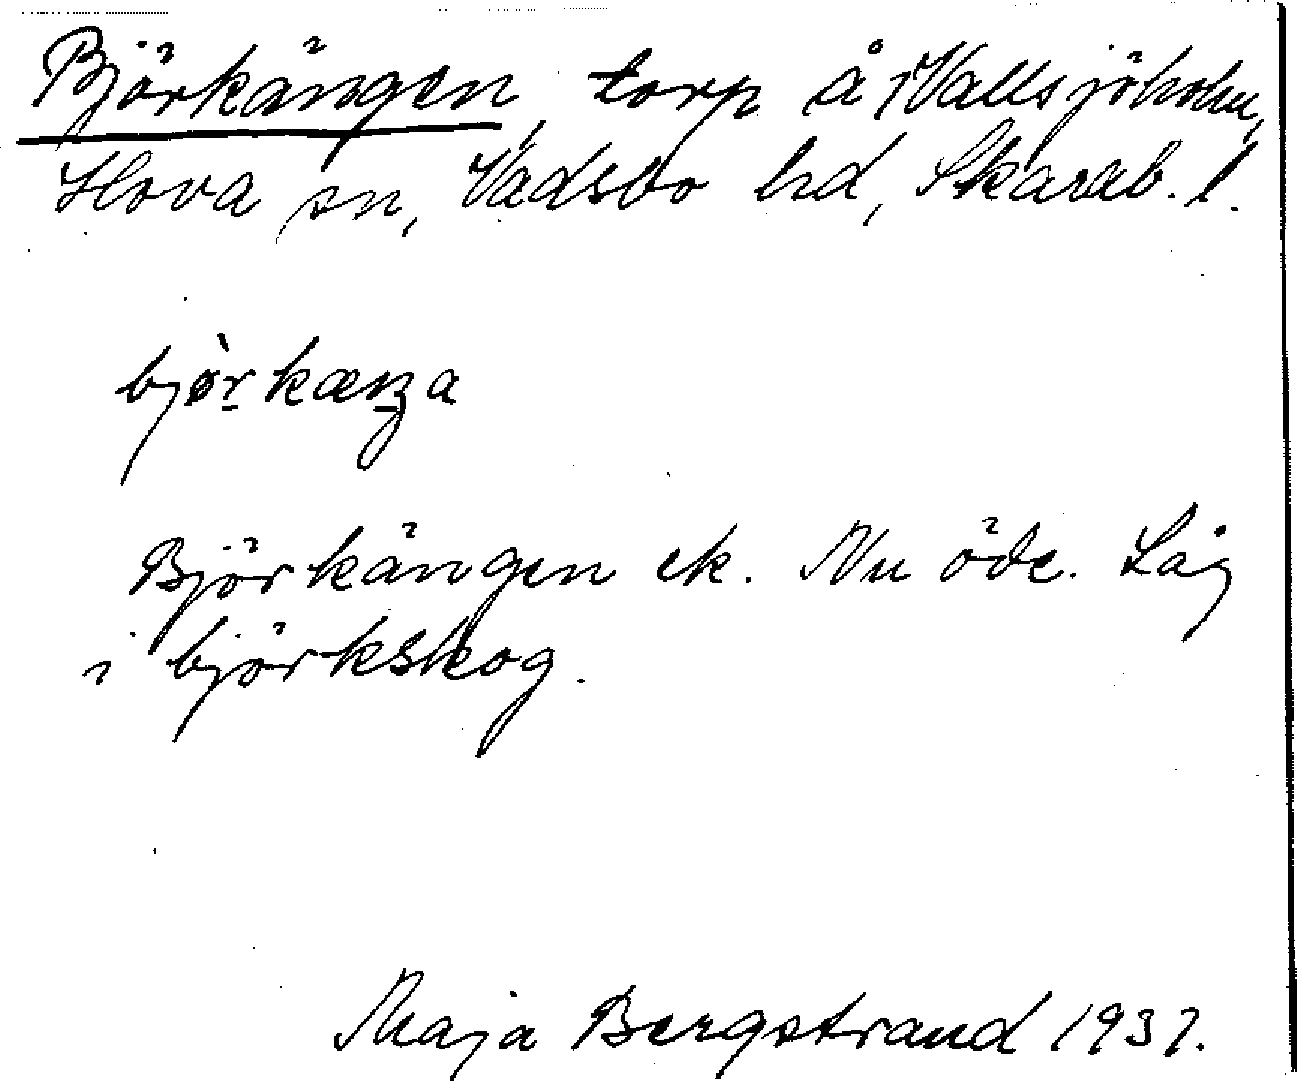 Björkängen, torp å Vallsjöholm,
Hova sn, Vadsbo hd, Skarab. l.
Björkängen ek. Nu öde. Låg
i björkskog.
Maja Bergstrand 1937.